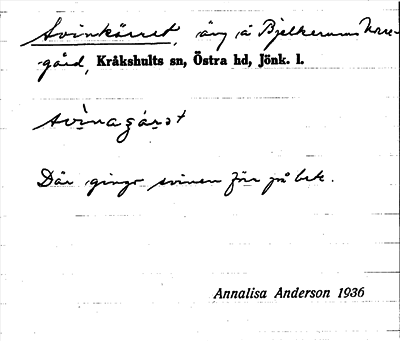 Svinkärret, äng å Bjelkerums Norre-
gård, Kråkshults sn, Östra hd, Jönk. l.
Där gingo svinen förr på bete.
Annalisa Anderson 1936